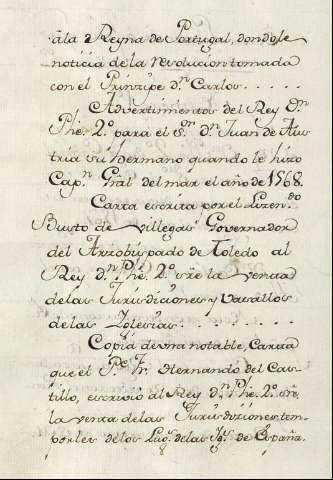 àla Reyna de Portugal, dondole
noticia de la revolucion tomada
con el Prinzipe d.n Carlos . . . . .
Advertimentos del Rey D.n
Phe. 2.º para el s.or d.n Juan de Aus
tria su hermano quando le hizo
Cap.n Gñal del mar el año de 1568.
Carta escrita por el Lizen.do
Busto de Villegas Governador
del Arzobispado de Toledo al
Rey d.n Phe. 2.º sre la venta
de las Jurisdiciones y Vasallos
de las Iglesias . . . . . . . .
Copia de una notable, Carta
que el P.e Fr. Hernando del Cas-
tillo, escrivio al Rey d.n Phe. 2.º sre.
la venta de las Jurisdiziones tem-
porles de los Lug.s de las Ig.s de España.